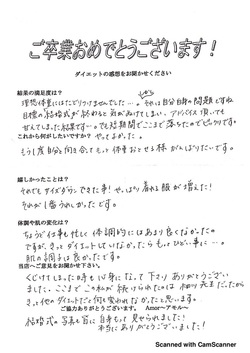 ご卒業おめでとうございます！
ダイエットの感想をお聞かせください
結果の満足度は？
理想体重にはたどりつけませんでした…。それは自分自身の問題ですね
目標の結婚式が終わると気がぬけてしまい、アドバイス頂いても
せんでした結果です…でも短期間でここまで落ちたのでビックリです。
これから何がしたいですか？
やってよかった。
もう1度自分と向き合ってもっと体重おとせる様がんばりたいです。
嬉しかったことは？
それでもサイズダウンできた事！やっぱり着れる服が増えた！
それが1番うれしかったです。
体調や肌の変化は？
ちょうど仕事も忙しく体調的にはあまり良くなかったの
ですが、きっとダイエットしていなかったらもっとひどい事に…。
肌の調子は良かったです。
当店へご意見をお聞かせ下さい。
くじけてしまった日も心強になって下さりありがとうござい
ました。ここまでこの私が続けられたのは
きっと他のダイエットだと何も変われなかったと思います。
ご協力ありがとうございます。 Amor〜アモール〜
結婚式の写真も皆に自身もって見せられました！
本当にありがとうございました！
Scanned with CamScanner